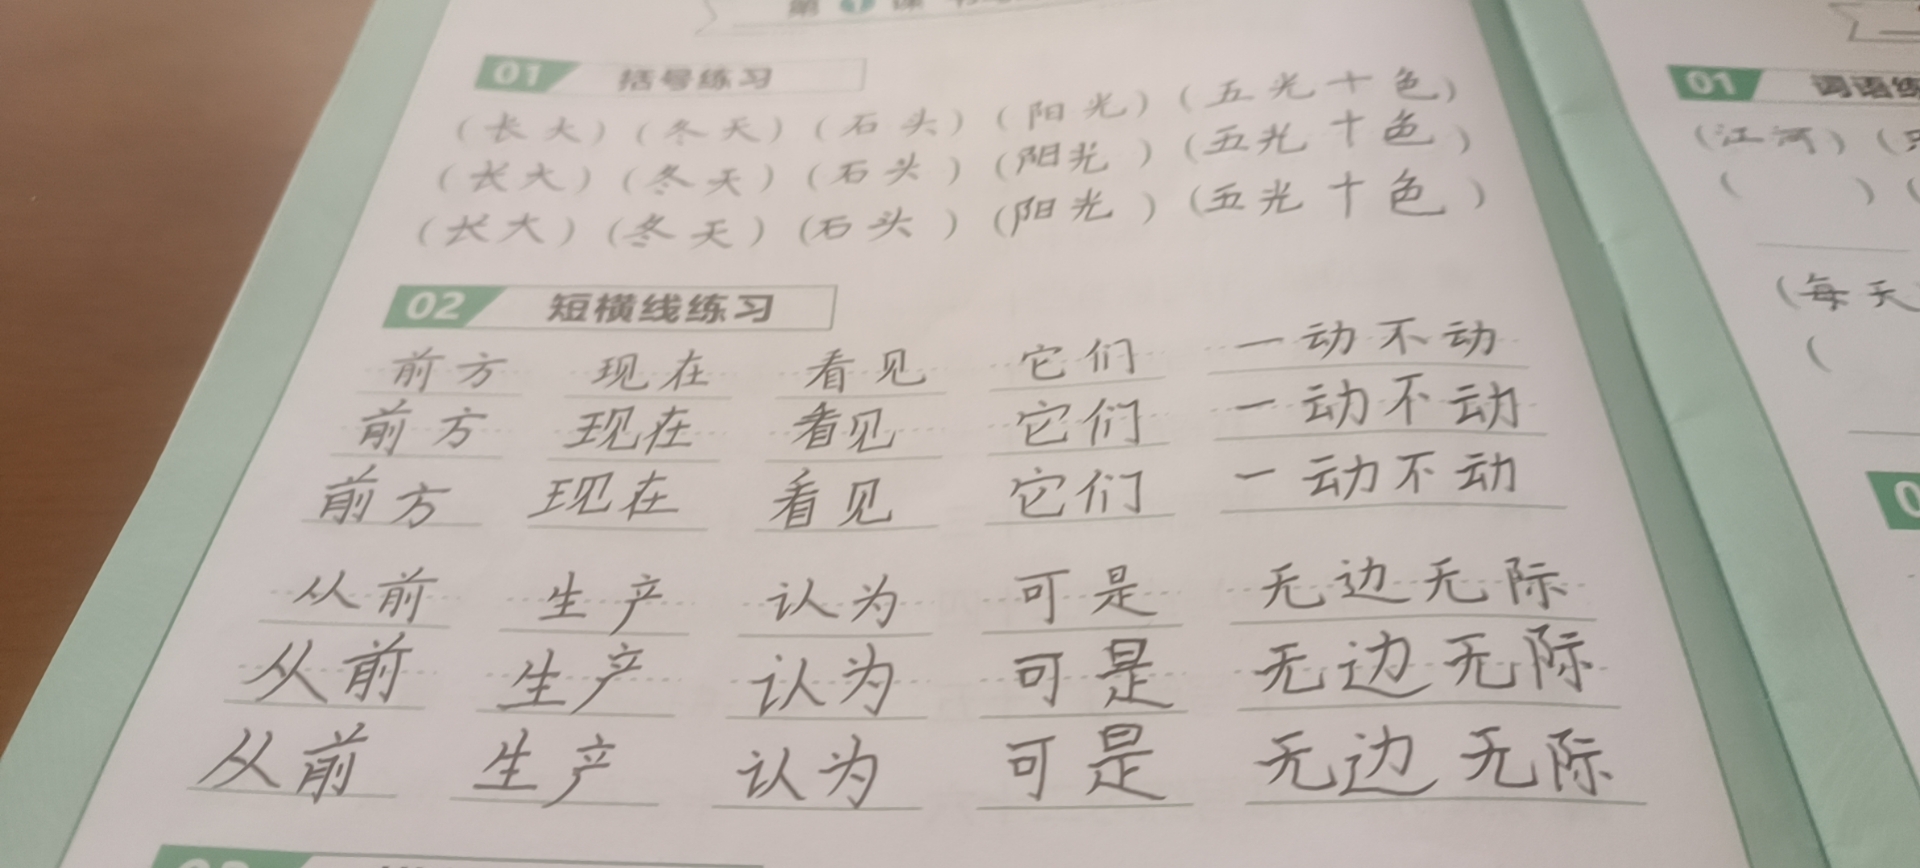 第1课
01 括号练习
(长大)(冬天)(石头)(阳光)(五光十色)
(长大)(冬天)(石头)(阳光)(五光十色)
(长大)(冬天)(石头)(阳光)(五光十色)
02 短横线练习
前方 现在 看见 它们 一动不动
前方 现在 看见 它们 一动不动
前方 现在 看见 它们 一动不动
从前 生产 认为 可是 无边无际
从前 生产 认为 可是 无边无际
从前 生产 认为 可是 无边无际
01 词语练
(江河)
(每天